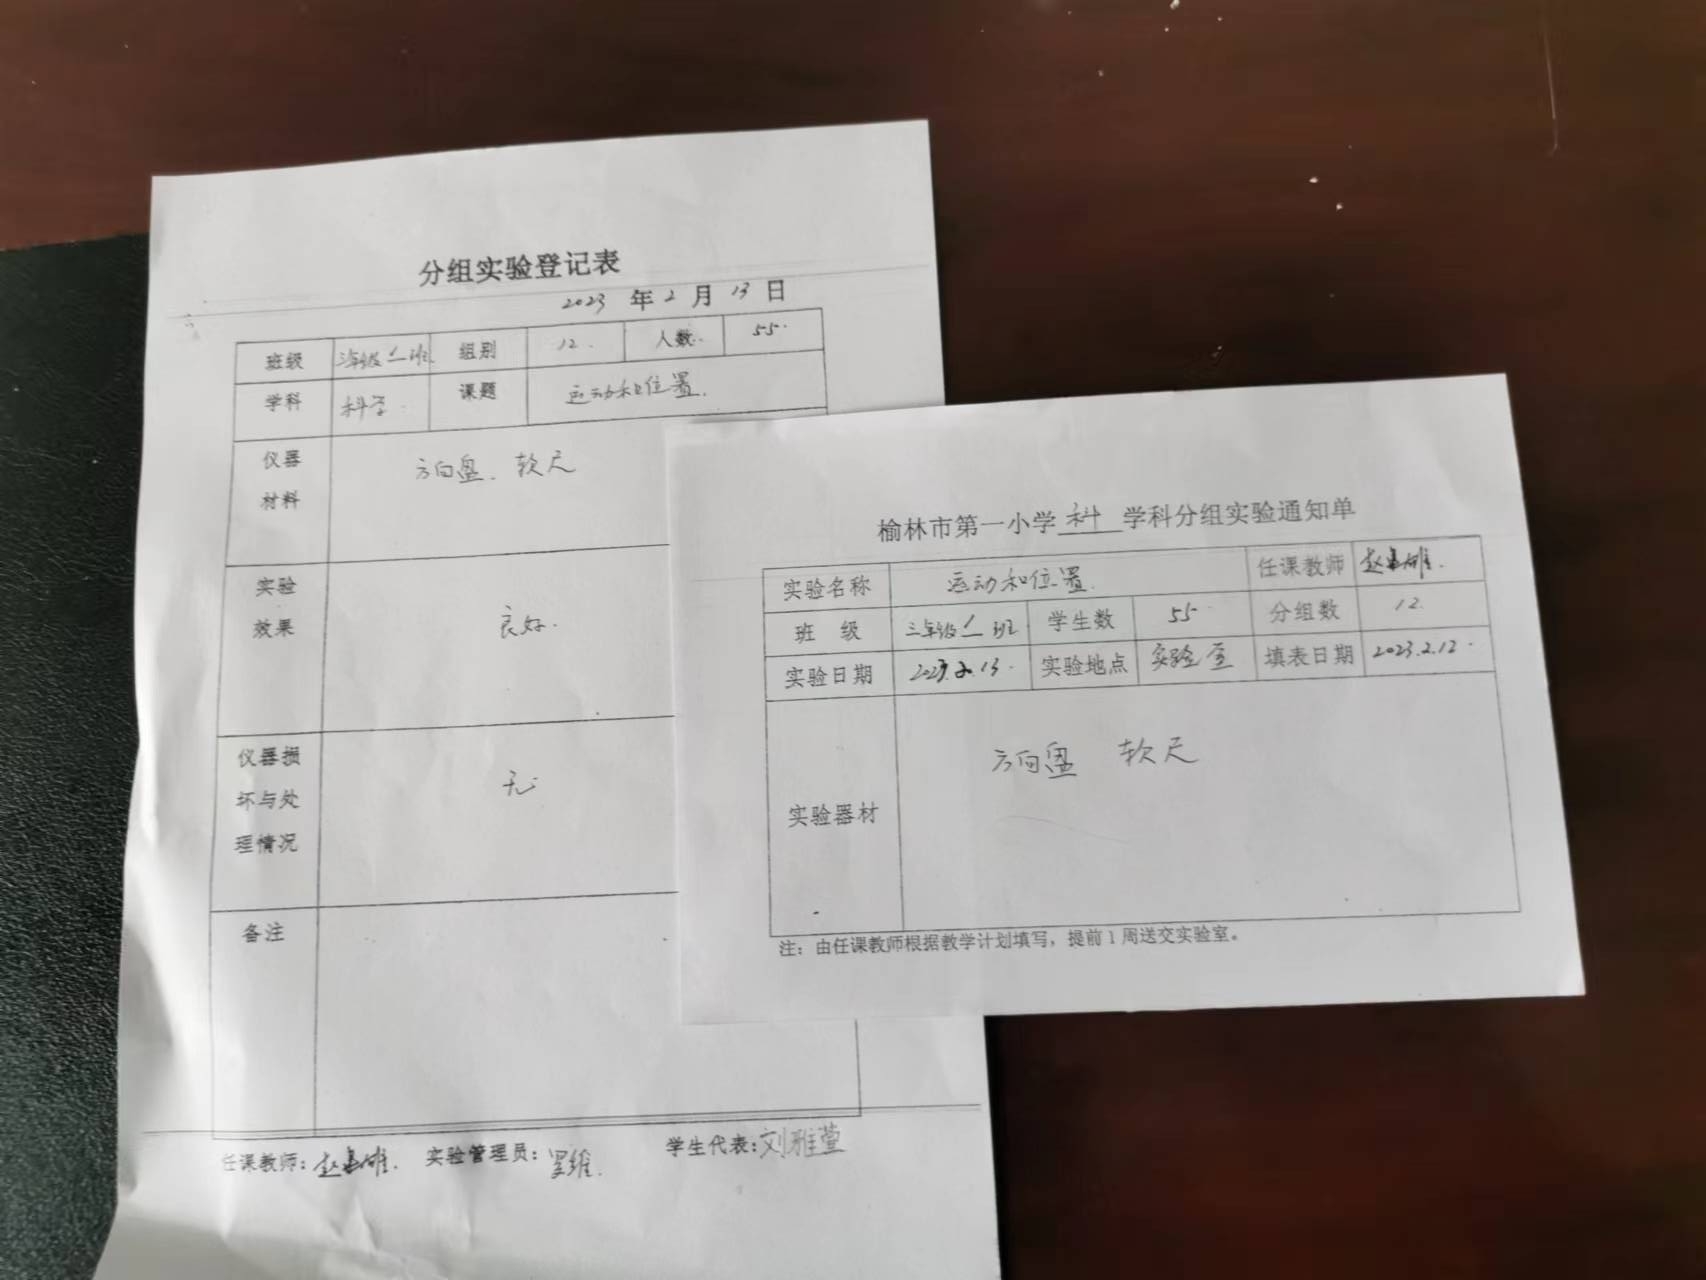 分组实验登记表
2023 年 2 月 13 日
班级 三年级 班 组别 12. 人数 55.
学科 科学 课题 运动和位置.
仪器材料 方向盘. 软尺
实验效果 良好.
仪器损坏与处理情况 无
备注
任课教师: 实验管理员: 学生代表:刘雅萱
榆林市第一小学 科 学科分组实验通知单
实验名称 运动和位置. 任课教师
班 级 三年级 班 学生数 55 分组数 12.
实验日期 2023.2.13. 实验地点 实验室 填表日期 2023.2.12.
实验器材 方向盘 软尺
注:由任课教师根据教学计划填写,提前1周送交实验室。